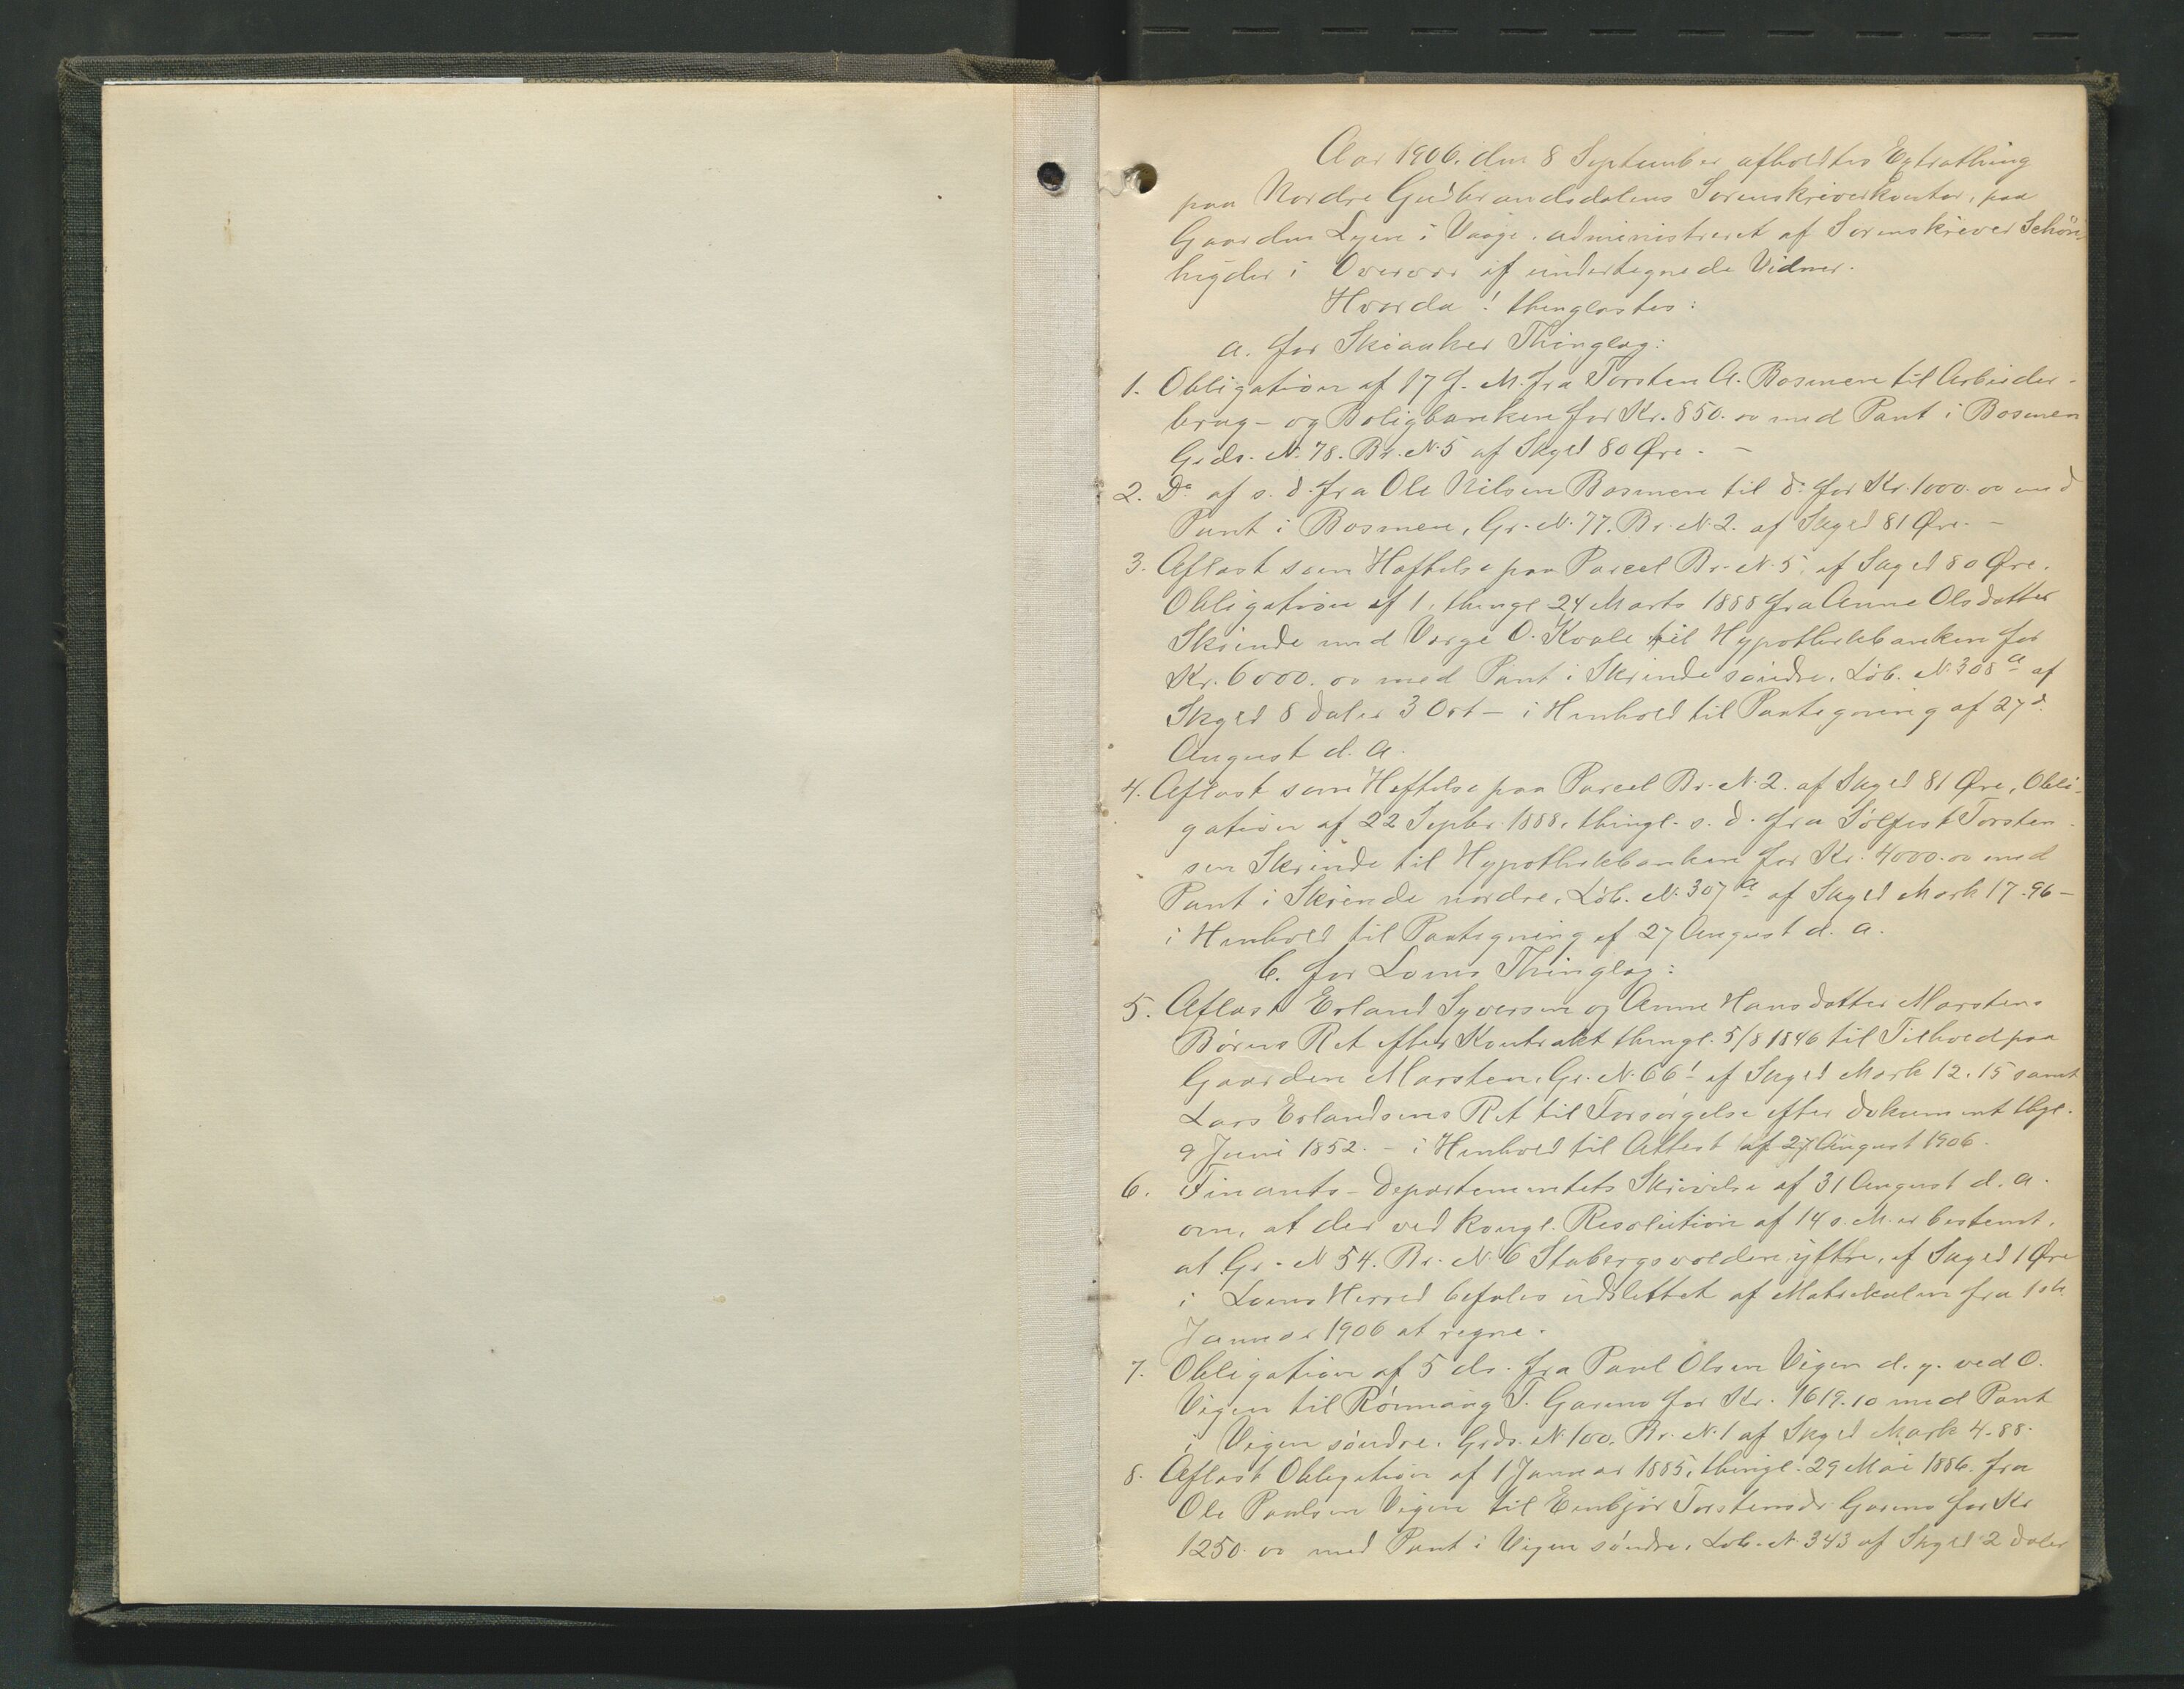 Aar 1906, den 8 September afholdtes Extrathing
paa Nordre Gudbrandsdalens Sorenskriverkontor, paa
Gaarden Lyen i Vaage, administreret af Sorenskriver Schön-
heyder i Overvær af undertegnede Vidner.
Hvorda! thinglæstes:
a. for Skiaaker Thinglag:
1. Obligation af 17 f. M. fra Torsten A. Bosmen til Arbeider-
brug- og Boligbanken for Kr. 850.00 med Pant i Bosmen
Grds. N. 78. Br. N. 5 af Skyld 80 Øre. -
2. Do af s. d. fra Ole Nilsen Bosmen til do for Kr. 1000.00 med
Pant i Bosmen, Gr. N. 77. Br. N. 2. af Skyld 81 Øre. -
3. Aflæst som Heftelse paa Parcel Br. N. 5, af Skyld 80 Øre.
Obligation af 1, thingl. 24 Marts 1888 fra Anne Olsdatter
Skrinde med Verge O. Kvale til Hypothekbanken for
Kr. 6000.00 med Pant i Skrinde søndre, Løb. N. 308 a af
Skyld 8 daler 3 Ort - i Henhold til Paategning af 27 d.
August d. A.
4. Aflæst som Heftelse paa Parcel Br. N. 2. af Skyld 81 Øre, Obli-
gation af 22 Septbr. 1888, thingl. s. d. fra Sølfest Torsten-
sen Skrinde til Hypothekbanken for Kr. 4000.00 med
Pant i Skrinde nordre, Løb. N. 307 a af Skyld Mark 17.96 -
i Henhold til Paategning af 27 August d. A.
b. for Loms Thinglag:
5. Aflæst Erland Syversen og Anne Hansdatter Marstens
Børns Ret efter Kontrakt thingl. 5/8 1846 til Tilhold paa
Gaarden Marsten, Gr. N. 66 1 af Skyld Mark 12.15 samt
Lars Erlandsens Ret til Forsørgelse efter dokument thgl.
9 Juni 1852. - i Henhold til Attest af 27 August 1906.
6. Finants-Departementets Skrivelse af 31 August d. A.
om, at der ved kongl. Resolution af 14 s. M. er bestemt,
at Gr. N 54. Br. N. 6 Stabergsvolden yttre, af Skyld 1 Øre
i Loms Herred befales udslettet af Matrikulen fra 1ste
Januar 1906 at regne.
7. Obligation af 5 ds. fra Paul Olsen Vigen d. y. ved O.
Vigen til Rønnaug T. Garmo for Kr. 1619.10 med Pant
i Vigen søndre, Grds. N. 100. Br. N. 1 af Skyld Mark 4.88.
8. Aflæst Obligation af 1 Januar 1885, thingl. 29 Mai 1886 fra
Ole Paulsen Vigen til Eenbjør Torstensdr. Garmo for Kr
1250.00 med Pant i Vigen søndre, Løb. N. 343 af Skyld 2 daler